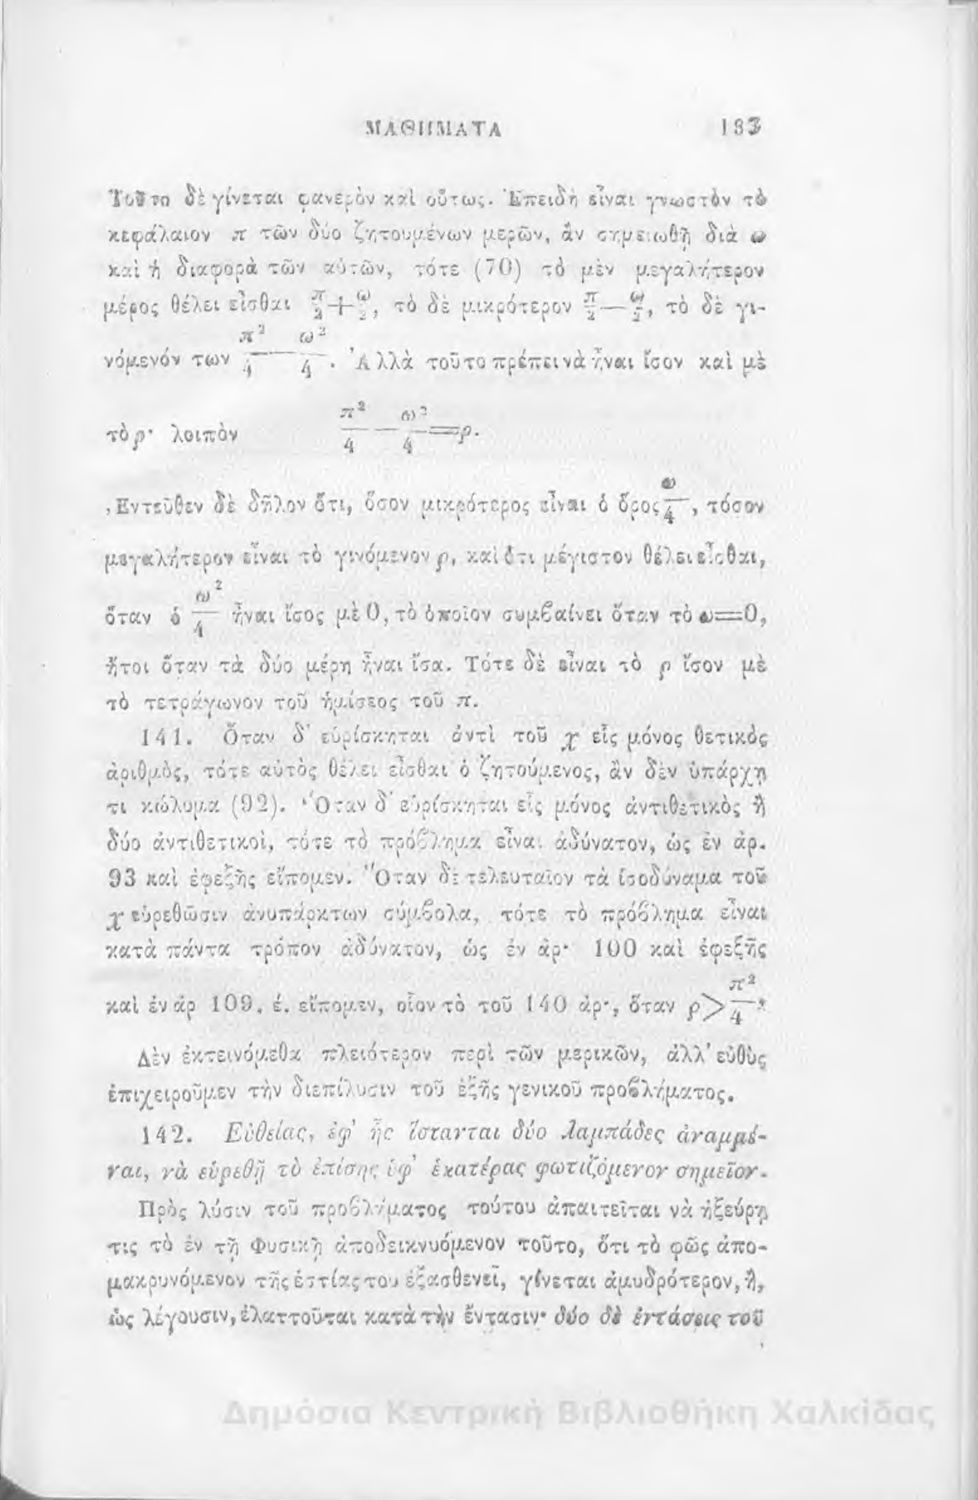 ΜΑΘΗΜΑΤΑ 183
Τοῦτο δὲ γίνεται φανερὸν καὶ οὕτως. Ἐπειδὴ εἶναι γνωστὸν τὸ
κεφάλαιον π τῶν δύο ζητουμένων μερῶν, ἂν σημειωθῇ διὰ ω
καὶ ἡ διαφορὰ τῶν αὐτῶν, τότε (70) τὸ μὲν μεγαλήτερον
μέρος θέλει εἶσθαι π/2+ω/2, τὸ δὲ μικρότερον π/2—ω/2, τὸ δὲ γι-
νόμενόν των π²/4—ω²/4. Ἀλλὰ τοῦτο πρέπει νὰ ἦναι ἴσον καὶ μὲ
τὸ ρ· λοιπὸν π²/4—ω²/4=ρ.
Ἐντεῦθεν δὲ δῆλον ὅτι, ὅσον μικρότερος εἶναι ὁ ὅρος ω/4, τόσον
μεγαλήτερον εἶναι τὸ γινόμενον ρ, καὶ ὅτι μέγιστον θέλει εἶσθαι,
ὅταν ὁ ω²/4 ἦναι ἴσος μὲ 0, τὸ ὁποῖον συμβαίνει ὅταν τὸ ω=0,
ἤτοι ὅταν τὰ δύο μέρη ἦναι ἴσα. Τότε δὲ εἶναι τὸ ρ ἴσον μὲ
τὸ τετράγωνον τοῦ ἡμίσεος τοῦ π.
141. Ὅταν δ' εὑρίσκηται ἀντὶ τοῦ χ εἷς μόνος θετικὸς
ἀριθμὸς, τότε αὐτὸς θέλει εἶσθαι ὁ ζητούμενος, ἂν δὲν ὑπάρχῃ
τι κώλυμα (92). Ὅταν δ' εὑρίσκηται εἷς μόνος ἀντιθετικὸς ἢ
δύο ἀντιθετικοὶ, τότε τὸ πρόβλημα εἶναι ἀδύνατον, ὡς ἐν ἀρ.
93 καὶ ἐφεξῆς εἴπομεν. Ὅταν δὲ τελευταῖον τὰ ἰσοδύναμα τοῦ
χ εὑρεθῶσιν ἀνυπάρκτων σύμβολα, τότε τὸ πρόβλημα εἶναι
κατὰ πάντα τρόπον ἀδύνατον, ὡς ἐν ἀρ· 100 καὶ ἐφεξῆς
καὶ ἐν ἀρ 109, ἑ. εἴπομεν, οἷον τὸ τοῦ 140 ἀρ·, ὅταν ρ>π²/4.
Δὲν ἐκτεινόμεθα πλειότερον περὶ τῶν μερικῶν, ἀλλ' εὐθὺς
ἐπιχειροῦμεν τὴν διεπίλυσιν τοῦ ἑξῆς γενικοῦ προβλήματος.
142. Εὐθείας, ἐφ' ἧς ἵστανται δύο λαμπάδες ἀναμμέ-
ναι, νὰ εὑρεθῇ τὸ ἐπίσης ὑφ' ἑκατέρας φωτιζόμενον σημεῖον.
Πρὸς λύσιν τοῦ προβλήματος τούτου ἀπαιτεῖται νὰ ἠξεύρῃ
τις τὸ ἐν τῇ Φυσικῇ ἀποδεικνυόμενον τοῦτο, ὅτι τὸ φῶς ἀπο-
μακρυνόμενον τῆς ἑστίας του ἐξασθενεῖ, γίνεται ἀμυδρότερον, ἢ,
ὡς λέγουσιν, ἐλαττοῦται κατὰ τὴν ἔντασιν· δύο δὲ ἐντάσεις τοῦ
Δημόσια Κεντρική Βιβλιοθήκη Χαλκίδας